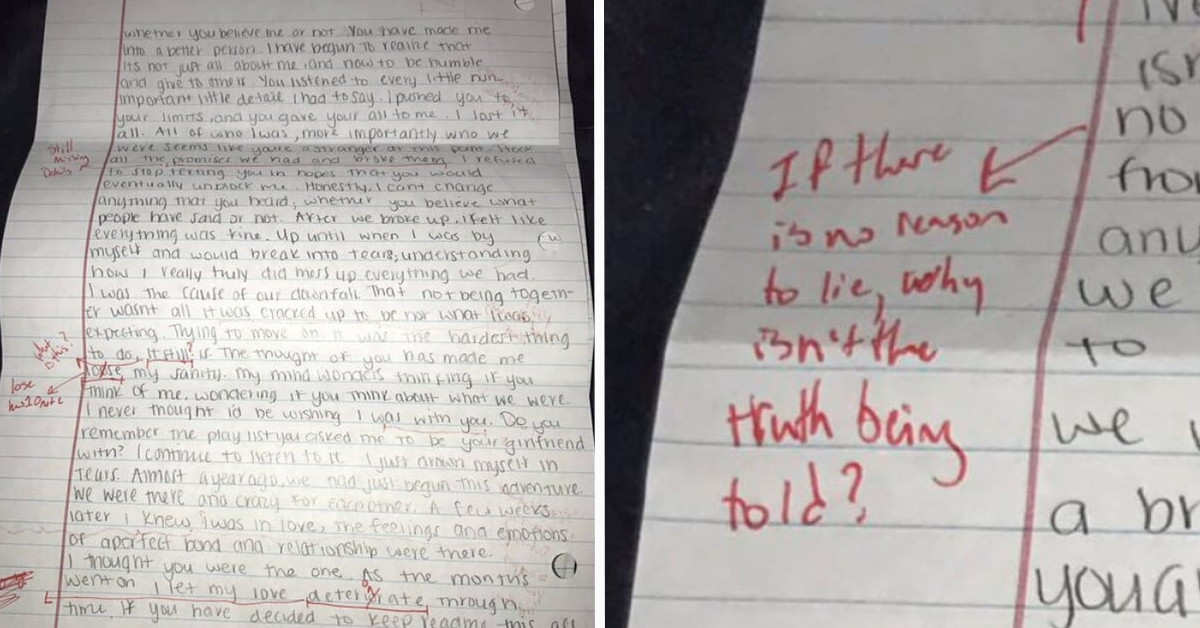 whether you believe me or not. You have made me
into a better person. I have begun to realize that
its not just all about me, and now to be humble
and give to others. You listened to every little nun
important little detail I had to say. I pushed you to
your limits, and you gave your all to me. I lost it
all. All of who I was, more importantly who we
were seems like youre a stranger at this
all the promises we had and broke them. I refused
to stop texting you in hopes that you would
eventually unblock me. Honestly, I cant change
anything that you heard, whether you believe what
people have said or not. After we broke up, I felt like
everything was fine. Up until when I was by
myself and would break into tears, understanding
how I really truly did mess up everything we had.
I was the cause of our downfall. That not being togeth-
er wasnt all it was cracked up to be nor what I was
expecting. Trying to move on it was the hardest thing
to do, it still? is. The thought of you has made me
loose my sanity. My mind wonders thinking if you
think of me. wondering if you think about what we were.
I never thought id be wishing I was with you. Do you
remember the play list you asked me to be your girlfriend
with? I continue to listen to it I just drown myself in
tears. Almost a year ago, we had just begun this adventure.
We were there and crazy for eachother. A few weeks
later I knew I was in love, the feelings and emotions
of a perfect bond and relationship were there.
I thought you were the one. As the months
went on I let my love deteriorate through
time. If you have decided to keep reading this all
Still
missing
Details
what
is
this?
lose
has 1 O note
If there
is no reason
to lie, why
isn't the
truth being
told?
isn
no
from
any
we
to
we
a br
you a